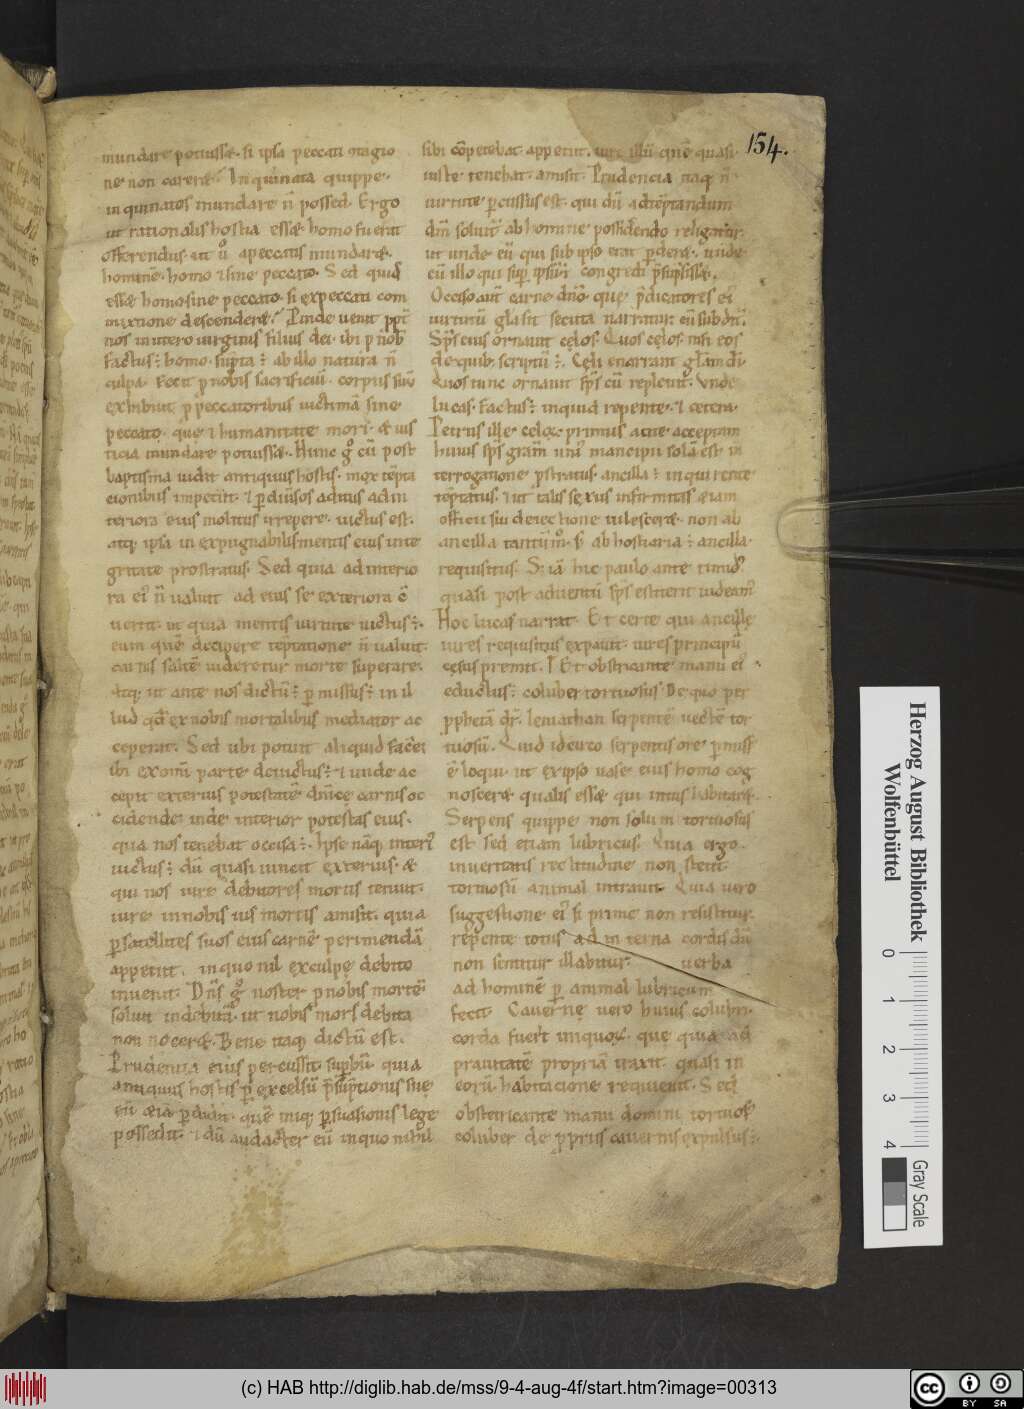 154.
mundare potuisset. si ipsa peccati ꝯtagio
ne non careret. Inquinata quippe.
inquinatos mundare n̄ possed. Ergo
ut rationalis hostia esset. homo fuerat
offerendus. ut ů a peccatis mundaret.
hominē. homo & sine peccato. Sed quis
esset homo sine peccato. si ex peccati com
mixtione descenderet. Pinde uenit ppt̄
nos in utero uirginis filius dei. ibi p nob
factus; homo. sūpta; ab illo natura n̄
culpa. Fecit p nobis sacrificiū. corpus suū
exhibuit p peccatoribus uictimā sine
peccato. que & humanitate mori. & ius
ticia mundare potuisset. Hunc g̊ cū post
baptisma uidit antiquus hostis. mox tēpta
cionibus impetiit. & p diuersos aditus ad in
teriora eius molitus irrepere. uictus est.
atq; ipsa inexpugnabilis mentis eius inte
gritate prostratus. Sed quia ad interio
ra ei' n̄ ualuit ad eius se exteriora cō
uertit. ut quia mentis uirtute uictus;.
eum quē decipere tēptatione n̄ ualuit.
carnis saltē uideretur morte superare.
atq; ut ante nos dictū; pmissus; in il
lud qd ex nobis mortalibus mediator ac
ceperat. Sed ubi potuit aliquid facere
ibi ex omi parte deuictus; & unde ac
cepit exterius potestatē dnice carnis oc
cidende. inde interior potestas eius.
qua nos tenebat occisa;. Ipse nāq; interi'
uictus; dū quasi uincit exterius. &
qui nos iure debitores mortis tenuit.
iure in nobis ius mortis amisit. quia
p satellites suos eius carnē perimendā
appetiit. in quo nil ex culpę debito
inuenit. Dn̄s g̊ noster p nobis mortē
soluit indebitā. ut nobis mors debita
non noceret. Bene itaq; dictū est.
Prudentia eius percussit supbū quia
antiquus hostis p excessū psūptionis sue
eū etiā pdidit. quē iniq; psuasionis lege
possedit. & dū audacter eū in quo nihil
sibi cōpetebat appetiit. iure illū quē quasi
iuste tenebat. amisit. Prudencia itaq; n̄
uirtute pcussus est. qui dū ad tēptandum
dm̄ soluit' ab homine possidendo religatur.
ut unde eū qui sub ipso erat pderet. unde
eū illo qui sup ipsū; congredi psūpsisset.
Occiso aut carne dn̄o. que pdicatores ei'
uirtutū gl̄a sit secuta narratur cū subdit'.
Sp̄s eius ornauit cęlos. Quos cęlos. nisi eos
de quib; scriptū;. Cęli enarrant gl̄am dī.
Quos tunc ornauit sp̄s cū repleuit. Vnde
lucas. Factus; inquid repente. & cetera.
Petrus ille cęlo primus acne acceptam
huius sp̄s grām uni' mancipii sola est in
terrogatione pstratus. ancilla; inquirente
tēptatus. & ut talis sexus infirmitas etiam
officii sui deiectione uilesceret. non ab
ancilla tantūm. s; ab hostiaria; ancilla.
requisitus. S; iā hic paulo ante timid'
quasi post aduentū sp̄s extiterit uideam'
Hoc lucas narrat. Et certe qui ancillę
uires requisitus expauit. uires principū
cęsus premit. Et obstricante manu ei'
eductus; coluber tortuosus De quo per
pphetā dr̄. leuiathan serpentē uectē tor
tuosū. Quid idcirco serpentis ore pmiss'
ē loqui ut ex ipso uase eius homo cog
nosceret qualis esset qui intus habitaret.
Serpens quippe non solum tortuosus
est. sed etiam lubricus. Quia ergo.
in ueritatis rectitudine non stetit.
tortuosū animal intrauit. Quia uero
suggestione ei' si prime non resistitur.
repente totus ad interna cordis dū
non sentitur illabitur. uerba
ad hominē p animal lubricum
fecit. Cauernę uero huius colubri.
corda fuert iniquoꝝ. que quia ad
prauitatē propriā traxit. quasi in
eorū habitacione requieuit. Sed
obstetricante manu domini tortuos'
coluber de pprius cauernis expulsus;.
Herzog August Bibliothek
Wolfenbüttel
0 1 2 3 4
Gray Scale
(c) HAB http://diglib.hab.de/mss/9-4-aug-4f/start.htm?image=00313
cc BY SA